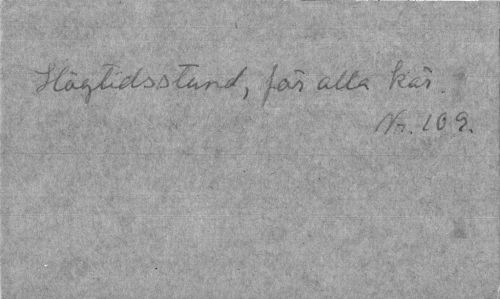 Högtidsstund, för alla kär.
Nr. 109.